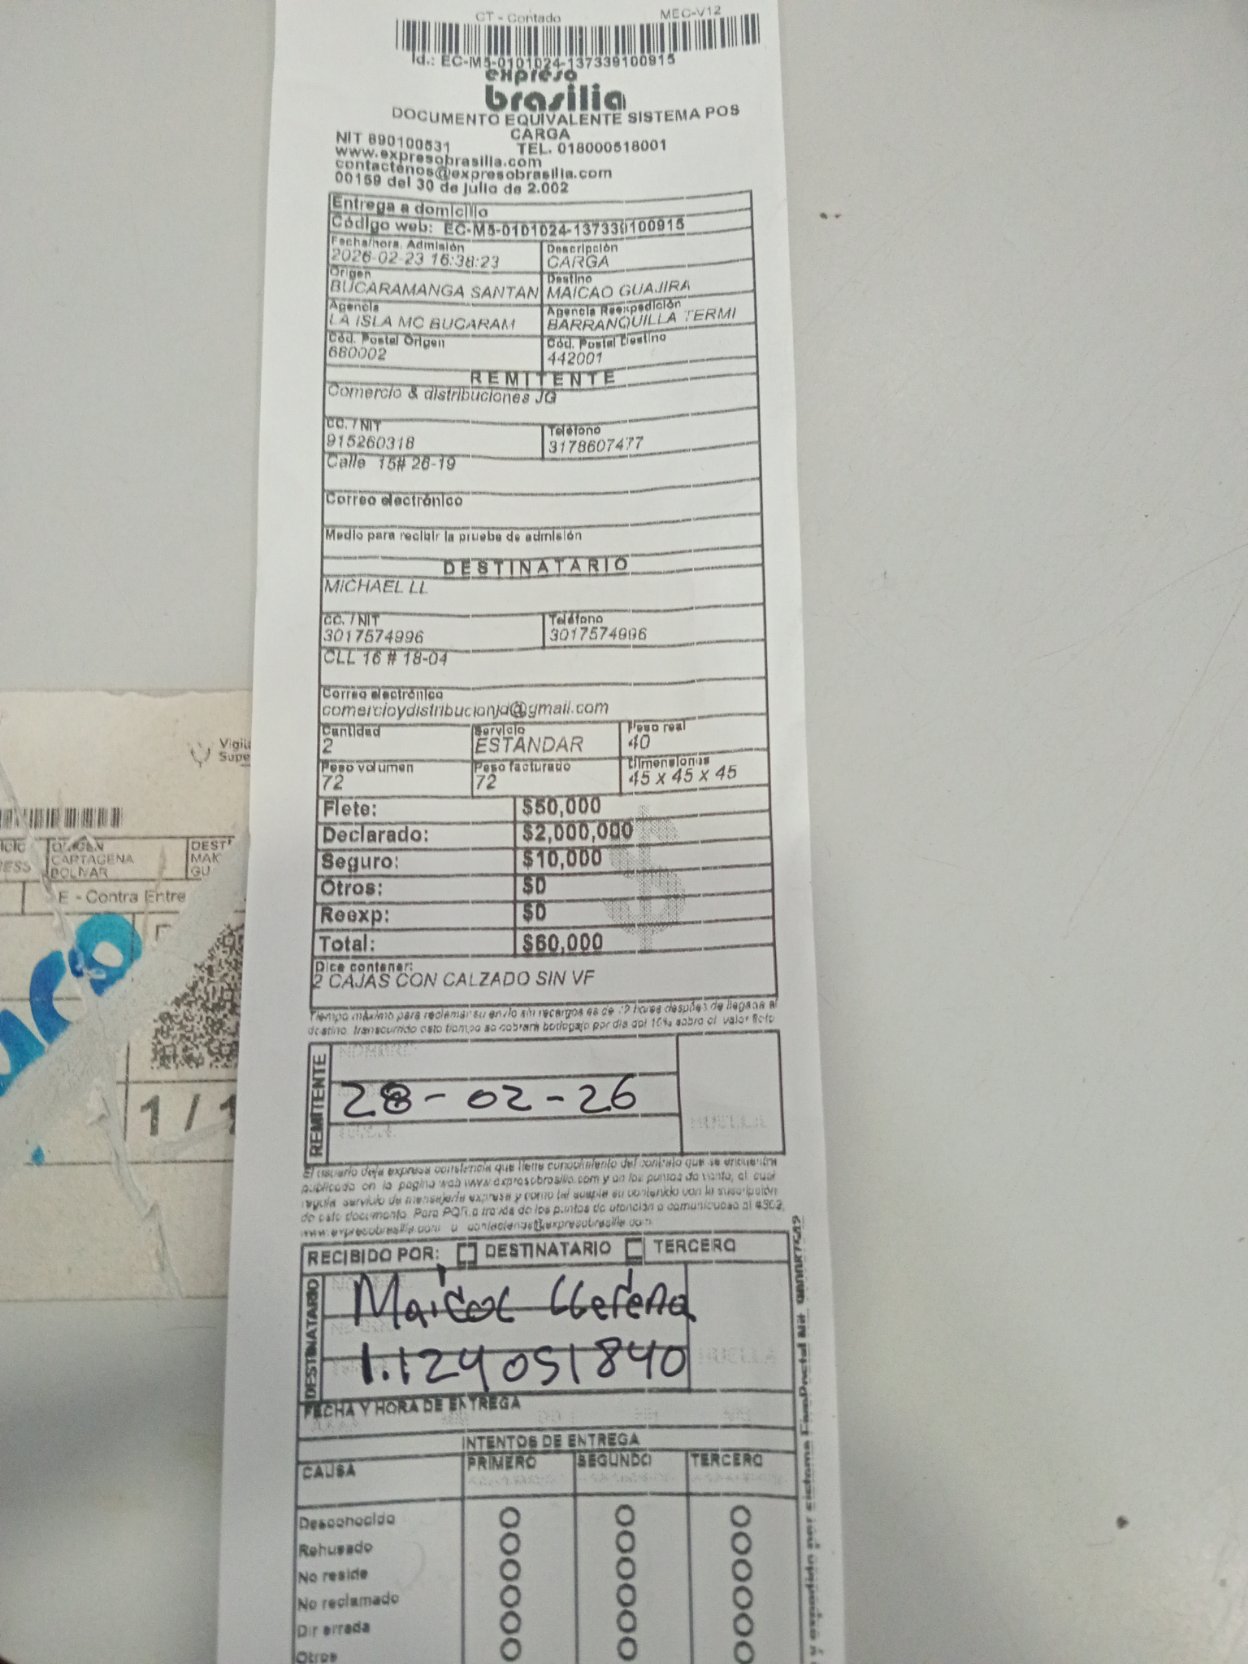 CT - Contado
MEC-V12
Id.: EC-M5-0101024-137339100915
expreso
brasilia
DOCUMENTO EQUIVALENTE SISTEMA POS
CARGA
NIT 890100531 TEL. 018000518001
www.expresobrasilia.com
contactenos@expresobrasilia.com
00159 del 30 de julio de 2.002
Entrega a domicilio
Código web: EC-M5-0101024-137339100915
Fecha/hora. Admisión Descripción
2026-02-23 16:38:23 CARGA
Origen Destino
BUCARAMANGA SANTAN MAICAO GUAJIRA
Agencia Agencia Reexpedición
LA ISLA MC BUCARAM BARRANQUILLA TERMI
Cód. Postal Origen Cód. Postal Destino
680002 442001
REMITENTE
Comercio & distribuciones JG
CC. / NIT Teléfono
915260318 3178607477
Calle 15# 26-19
Correo electrónico
Medio para recibir la prueba de admisión
DESTINATARIO
MICHAEL LL
CC. / NIT Teléfono
3017574996 3017574996
CLL 16 # 18-04
Correo electrónico
comercioydistribucionjd@gmail.com
Cantidad Servicio Peso real
2 ESTANDAR 40
Peso volumen Peso facturado Dimensiones
72 72 45 x 45 x 45
Flete: $50,000
Declarado: $2,000,000
Seguro: $10,000
Otros: $0
Reexp: $0
Total: $60,000
Dice contener:
2 CAJAS CON CALZADO SIN VF
Tiempo máximo para reclamar su envío sin recargos es de 72 horas después de llegada al
destino, transcurrido este tiempo se cobrará bodegaje por día del 10% sobre el valor flete
REMITENTE
NOMBRE
28-02-26
HUELLA
El usuario deja expresa constancia que tiene conocimiento del contrato que se encuentra
publicado en la pagina web www.expresobrasilia.com y en los puntos de venta, el cual
regula servicio de mensajería expresa y como tal acepta su contenido con la suscripción
de este documento. Para PQR a través de los puntos de atención o comunicarse al 4302,
www.expresobrasilia.com o contactenos@expresobrasilia.com
RECIBIDO POR: DESTINATARIO TERCERO
DESTINATARIO
Maicol Llerena
1.124051840
HUELLA
FECHA Y HORA DE ENTREGA
INTENTOS DE ENTREGA
CAUSA PRIMERO SEGUNDO TERCERO
Desconocido
Rehusado
No reside
No reclamado
Dir errada
Otros
Vigil
Supe
ORIGEN DEST
CARTAGENA MAK
BOLIVAR GU
E - Contra Entre
1 / 1